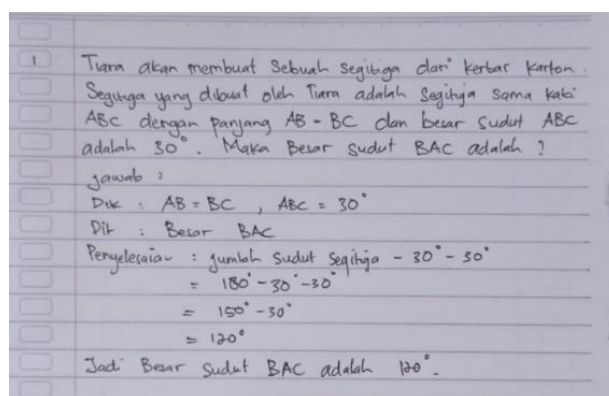 1 Tiara akan membuat Sebuah segitiga dari kertas karton.
Segitiga yang dibuat oleh Tiara adalah segitiga sama kaki
ABC dengan panjang AB = BC dan besar sudut ABC
adalah 30°. Maka Besar sudut BAC adalah ?
jawab :
Dik : AB = BC , ABC = 30°
Dit : Besar BAC
Penyelesaian : jumlah sudut segitiga - 30° - 30°
= 180° - 30° - 30°
= 150° - 30°
= 120°
Jadi Besar sudut BAC adalah 120°.